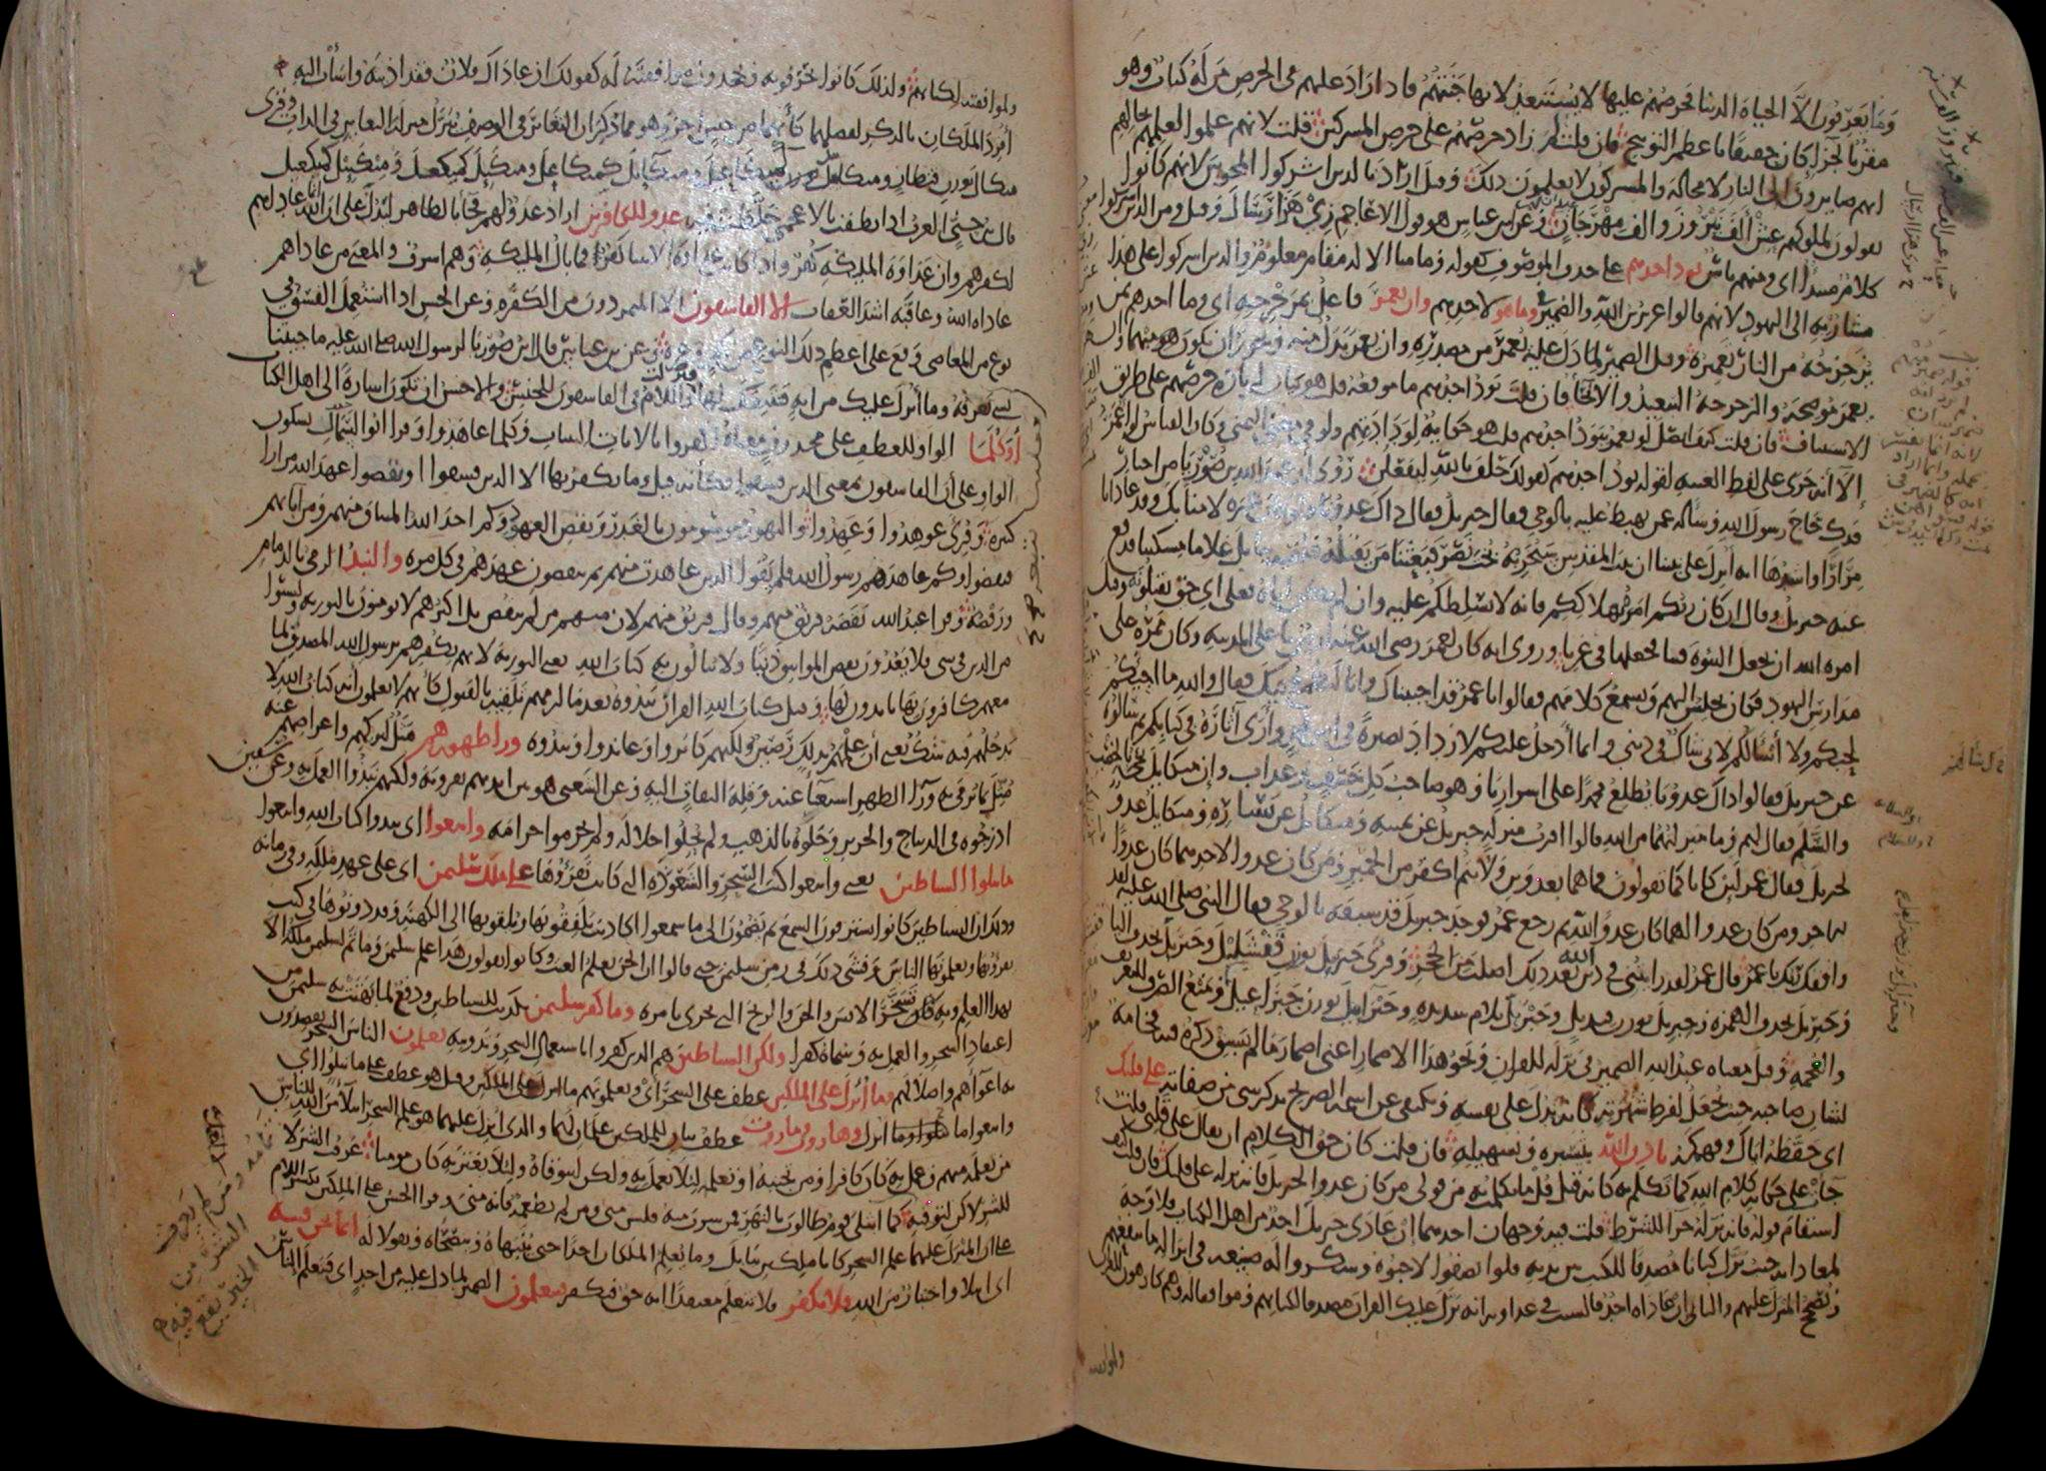 وما يعرفون الا الحياة الدنيا فحرصهم عليها لا يستبعد لانها جنتهم فاذا زاد عليهم في الحرص من له كتاب وهو
مقر بالجزاء كان حقيقا باعظم التوبيخ فان قلت لم زاد حرصهم على حرص المشركين قلت لانهم علموا لعلمهم بحالهم
انهم صائرون الى النار لا محالة والمشركون لا يعلمون ذلك وقيل اراد بالذين اشركوا المجوس لانهم كانوا
يقولون لملوكهم عش الف نيروز والف مهرجان وعن ابن عباس هو قول الاعاجم زي هزار سال وقيل ومن الذين اشركوا
كلام مبتدا اي ومنهم ناس يود احدهم على حذف الموصوف كقوله وما منا الا له مقام معلوم والذين اشركوا على هذا
مشار به الى اليهود لانهم قالوا عزير ابن الله والضمير في وما هو لاحدهم وان يعمر فاعل بمزحزحه اي وما احدهم بمن
يزحزحه من النار تعميره وقيل الضمير لما دل عليه يعمر من مصدره وان يعمر بدل منه ويجوز ان يكون هو مبهما وان
يعمر موضحه والزحزحة التبعيد والانحاء فان قلت يود احدهم ما موقعه قلت هو بيان لزيادة حرصهم على طريق
الاستئناف فان قلت كيف اتصل لو يعمر بيود احدهم قلت هو حكاية لودادتهم ولو في معنى التمني وكان القياس لو اعمر
الا انه جرى على لفظ الغيبة لقوله يود احدهم كقولك حلف بالله ليفعلن روي ان عبد الله بن صوريا من احبار
فدك حاج رسول الله وساله عمن يهبط عليه بالوحي فقال جبريل فقال ذاك عدونا ولو كان غيره لامنا بك وقد عادانا
مرارا واشدها انه انزل على نبينا ان بيت المقدس سيخربه بخت نصر فبعثنا من يقتله فلقيه ببابل غلاما مسكينا فدفع
عنه جبريل وقال ان كان ربكم امره بهلاككم فانه لا يسلطكم عليه وان لم يكن اياه فعلى اي حق تقتلونه وقيل
امره الله ان يجعل النبوة فينا فجعلها في غيرنا وروي انه كان لعمر رضي الله عنه ارض باعلى المدينة وكان ممره على
مدارس اليهود فكان يجلس اليهم ويسمع كلامهم فقالوا يا عمر قد احببناك وانا لنطمع فيك فقال والله ما اجيئكم
لحبكم ولا اسالكم لاني شاك في ديني وانما ادخل عليكم لازداد بصيرة في امر محمد وارى اثاره في كتابكم ثم سالهم
عن جبريل فقالوا ذاك عدونا يطلع محمدا على اسرارنا وهو صاحب كل خسف وعذاب وان ميكائيل يجيء بالخصب
والسلم فقال لهم وما منزلتهما من الله قالوا اقرب منزلة جبريل عن يمينه وميكائيل عن يساره وميكائيل عدو
لجبريل فقال عمر لئن كانا كما تقولون فما هما بعدوين ولانتم اكفر من الحمير ومن كان عدوا لاحدهما كان عدوا
للاخر ومن كان عدوا لهما كان عدوا لله ثم رجع عمر فوجد جبريل قد سبقه بالوحي فقال النبي صلى الله عليه لقد
وافقك ربك يا عمر فقال عمر لقد رايتني في دين الله بعد ذلك اصلب من الحجر وقرئ جبريل بوزن قفشليل وجبرئل بحذف اليا
وجبريل بحذف الهمزة وجبريل بوزن قنديل وجبرال بلام شديدة وجبرائيل بوزن جبراعيل ومنع الصرف للتعريف
والعجمة وقيل معناه عبد الله الضمير في نزله للقران ونحو هذا الاضمار اعني اضمار ما لم يسبق ذكره فيه فخامة
لشان صاحبه حيث يجعل لفرط شهرته كانه يدل على نفسه ويكتفى عن اسمه الصريح بذكر شيء من صفاته على قلبك
اي حفظه اياك وفهمكه باذن الله بتيسيره وتسهيله فان قلت كان حق الكلام ان يقال على قلبي قلت
جات على حكاية كلام الله كما تكلم به كانه قيل قل ما تكلمت به من قولي من كان عدوا لجبريل فانه نزله على قلبك فان قلت كيف
استقام قوله فانه نزله جزاء للشرط قلت فيه وجهان احدهما ان عادى جبريل احد من اهل الكتاب فلا وجه
لمعاداته حيث نزل كتابا مصدقا للكتب بين يديه فلو انصفوا لاحبوه وشكروا له صنيعه في انزاله ما ينفعهم
ويصحح المنزل عليهم والثاني ان عاداه احد فالسبب في عداوته انه نزل عليك القران مصدقا لكتابهم وموافقا له وهم كارهون للقران
ولموافقته لكتابهم ولذلك كانوا يحرفونه ويجحدون موافقته له كقولك ان عاداك فلان فقد اذيته واسات اليه
افرد الملكان بالذكر لفضلهما كانهما من جنس اخر وهو مما ذكر ان التغاير في الوصف ينزل منزلة التغاير في الذات وقرئ
ميكال بوزن قنطار وميكائيل كميكاعيل وميكائل كميكاعل وميكئل كميكعل وميكئيل كميكعيل
قال ابن جني العرب اذا نطقت بالاعجمي خلطت فيه عدو للكافرين اراد عدو لهم فجا بالظاهر ليدل على ان الله انما عاداهم
لكفرهم وان عداوة الملئكة كفر واذا كانت عداوة الانبيا كفرا فما بال الملئكة وهم اشرف والمعنى من عاداهم
عاداه الله وعاقبه اشد العقاب الا الفاسقون الا المتمردون من الكفرة وعن الحسن اذا استعمل الفسق في
نوع من المعاصي وقع على اعظم ذلك النوع من كفر وغيره وعن ابن عباس قال ابن صوريا لرسول الله صلى الله عليه ما جئتنا
بشيء نعرفه وما انزل عليك من اية فنتبعك لها فنزلت واللام في الفاسقون للجنس والاحسن ان تكون اشارة الى اهل الكتاب
اوكلما الواو للعطف على محذوف معناه اكفروا بالايات البينات وكلما عاهدوا وقرا ابو السمال بسكون
الواو على ان الفاسقون بمعنى الذين فسقوا فكانه قيل وما يكفر بها الا الذين فسقوا او نقضوا عهد الله مرارا
كثيرة وقرئ عوهدوا وعهدوا واليهود موسومون بالغدر ونقض العهود وكم اخذ الله الميثاق منهم ومن ابائهم
فنقضوا وكم عاهدهم رسول الله فلم يفوا الذين عاهدت منهم ثم ينقضون عهدهم في كل مرة والنبذ الرمي بالذمام
ورفضه وقرا عبد الله نقضه فريق منهم وقال فريق منهم لان منهم من لم ينقض بل اكثرهم لا يؤمنون بالتورية وليسوا
من الدين في شيء فلا يعدون نقض المواثيق ذنبا ولا يبالون به كتاب الله يعني التورية لانهم بكفرهم برسول الله المصدق لما
معهم كافرون بها نابذون لها وقيل كتاب الله القران نبذوه بعد ما لزمهم تلقيه بالقبول كانهم لا يعلمون انه كتاب الله لا
يدخلهم فيه شك يعني ان علمهم بذلك رصين ولكنهم كابروا وعاندوا ونبذوه وراء ظهورهم مثل لتركهم واعراضهم عنه
مثل بما يرمى به وراء الظهر استغناء عنه وقلة التفات اليه وعن الشعبي هو بين ايديهم يقرونه ولكنهم نبذوا العمل به وعن سفين
ادرجوه في الديباج والحرير وحلوه بالذهب ولم يحلوا حلاله ولم يحرموا حرامه واتبعوا اي نبذوا كتاب الله واتبعوا
ما تتلوا الشياطين يعني واتبعوا كتب السحر والشعوذة التي كانت تقرؤها على ملك سليمن اي على عهد ملكه وفي زمانه
وذلك ان الشياطين كانوا يسترقون السمع ثم يضمون الى ما سمعوا اكاذيب يلفقونها ويلقونها الى الكهنة وقد دونوها في كتب
يقرؤنها ويعلمونها الناس وفشى ذلك في زمن سليمن حتى قالوا ان الجن تعلم الغيب وكانوا يقولون هذا علم سليمن وما تم لسليمن ملكه الا
بهذا العلم وبه تسخر الانس والجن والريح التي تجري بامره وما كفر سليمن تكذيب للشياطين ودفع لما بهتت به سليمن من
اعتقاد السحر والعمل به وسماه كفرا ولكن الشياطين هم الذين كفروا باستعمال السحر وتدوينه يعلمون الناس السحر يقصدون
به اغواهم واضلالهم وما انزل على الملكين عطف على السحر اي ويعلمونهم ما انزل على الملكين وقيل هو عطف على ما تتلوا اي
واتبعوا ما انزل وهاروت وماروت عطف بيان للملكين علمان لهما والذي انزل عليهما هو علم السحر ابتلاء من الله للناس
من تعلمه منهم وعمل به كان كافرا ومن تجنبه او تعلمه لئلا يعمل به ولكن ليتوقاه ولئلا يغتر به كان مومنا عرفت الشر لا
للشر لاكن لتوقيه كما ابتلي قوم طالوت بالنهر فمن شرب منه فليس مني ومن لم يطعمه فانه مني وقرا الحسن على الملكين بكسر اللام
على ان المنزل عليهما علم السحر كانا ملكين ببابل وما يعلم الملكان احدا حتى ينبهاه وينصحاه ويقولا له انما نحن فتنة
اي ابتلاء واختبار من الله فلا تكفر فلا تتعلم معتقدا انه حق فتكفر فيتعلمون الضمير لما دل عليه من احد اي فيتعلم الناس
ومن لم يعرف
الشر من
الخير يقع
فيه